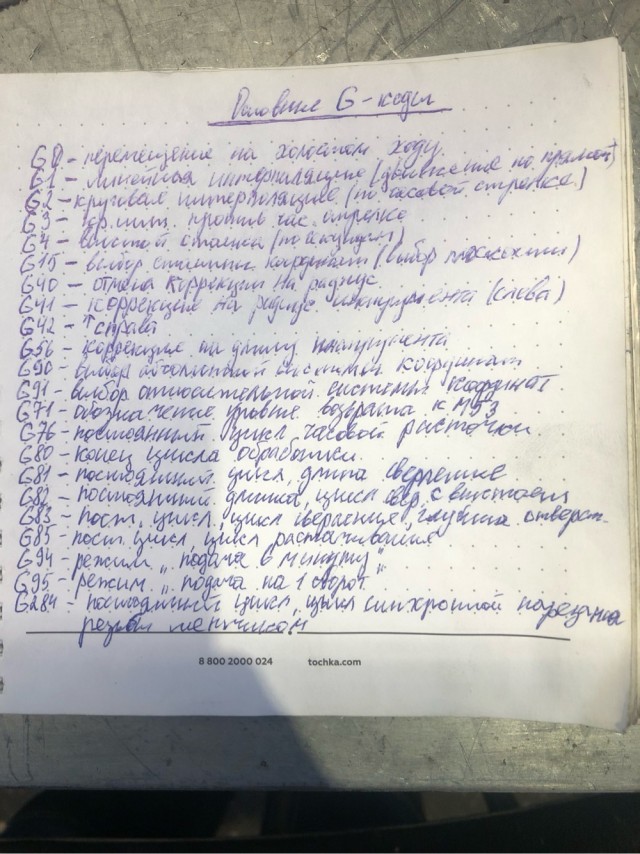 Половые G-коды
G0 - перемещение на холостом ходу
G1 - линейная интерполяция (движение по прямой)
G2 - круговая интерполяция (по часовой стрелке)
G3 - против час. стрелке
G4 - (по секундам)
G15 - выбор системы координат (выбор плоскости)
G40 - отмена коррекции на радиус
G41 - коррекция на радиус инструмента (слева)
G42 - ↑ справа
G56 - коррекция на длину инструмента
G90 - выбор абсолютной системы координат
G91 - выбор относительной системы координат
G71 - обозначение уровня возврата к M53
G76 - постоянный цикл часовой расточки
G80 - конец цикла обработки
G81 - постоянный цикл, длина сверление
G82 - постоянный длина, цикл свер. с выстоем
G83 - пост. цикл, цикл сверления, глубина отверст.
G85 - пост. цикл цикл растачивания
G94 - режим „подача в минуту„
G95 - режим „подача на 1 оборот
G284 - постоянный цикл, цикл синхронной нарезания
резьбы метчиком
8 800 2000 024 tochka.com